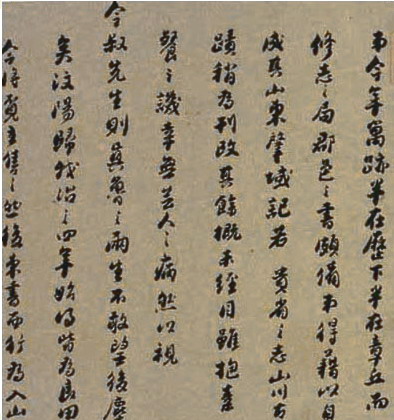 弟今年萬跡半在歷下半在章丘而
修志之局郡邑之書頗備弟得藉以自
成其山東肇域記若貴省之志山川古
蹟稍為刊改其餘概未經目雖抱素
餐之譏幸無芸人之病然以視
令叔先生則真魯之兩生不敢望後塵
矣汶陽歸我治之四年始得皆為良田
今將覓主售之然後束書而行為入山